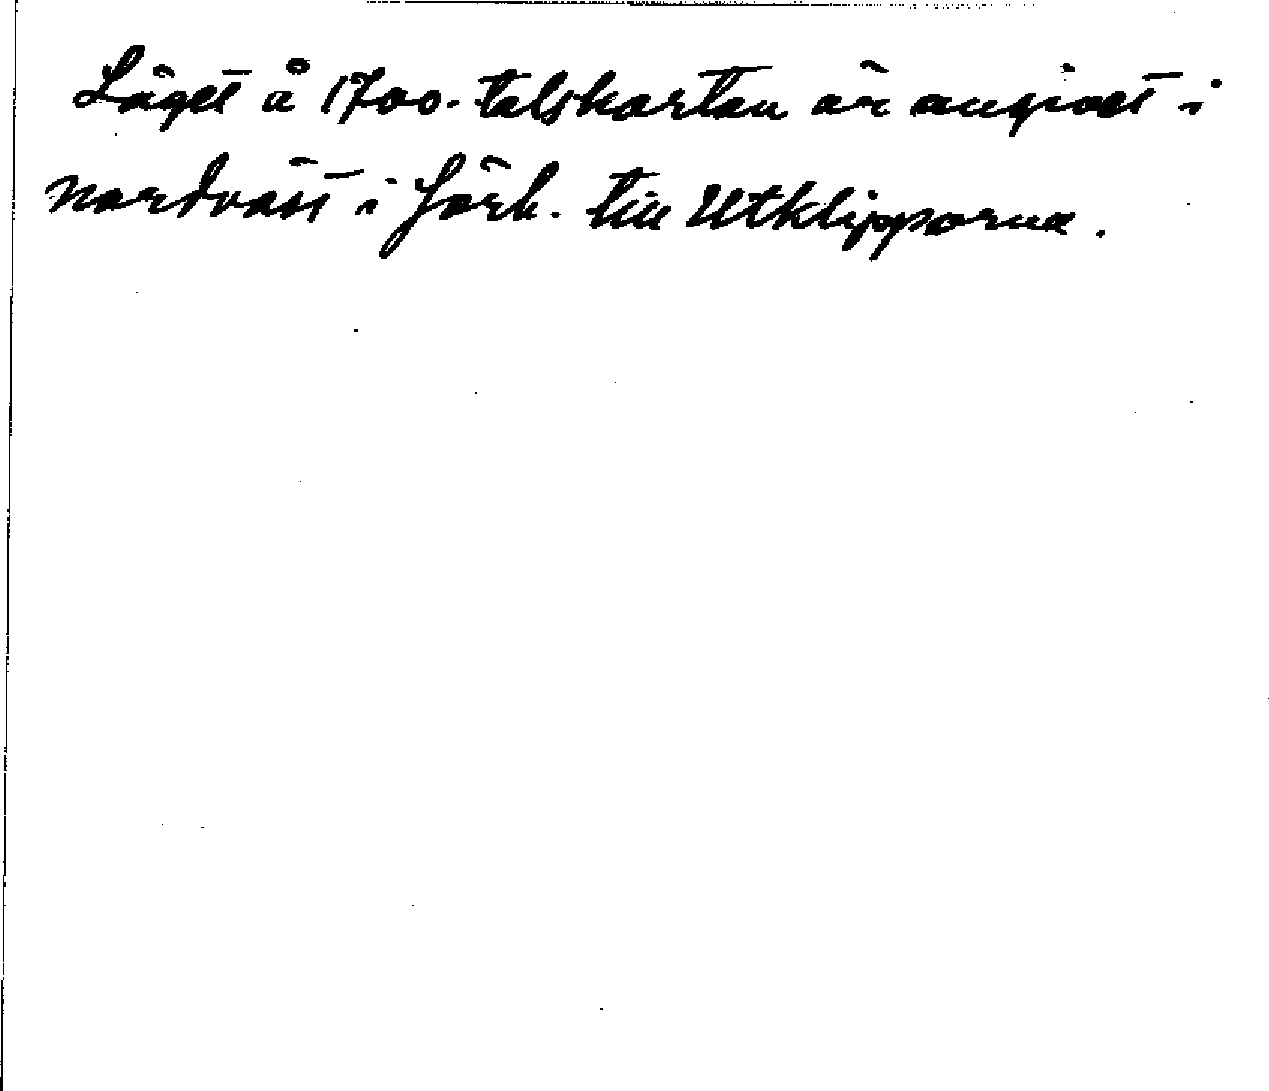 Läget å 1700-talskartan är angivet i
nordväst i förh. till Utklipporna.